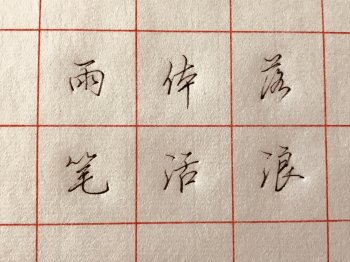 雨体落
笔活浪